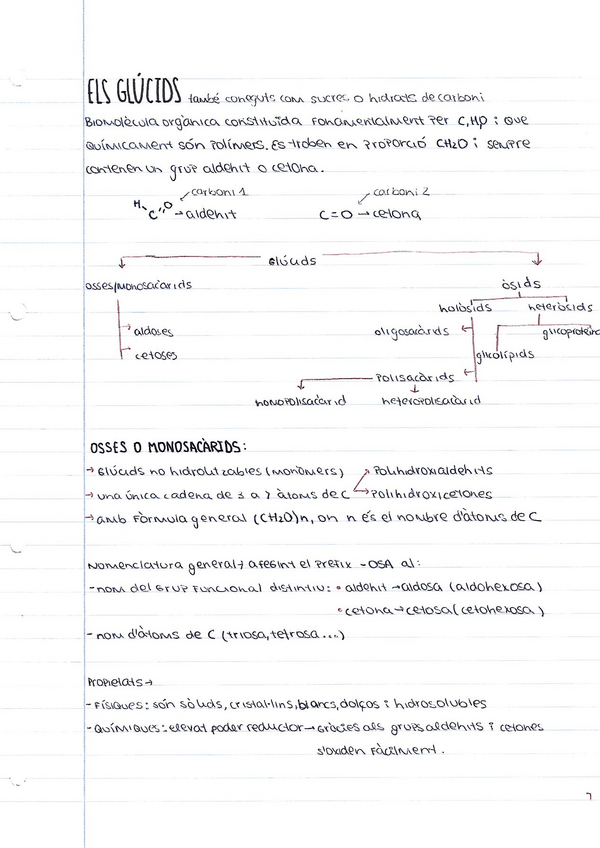 ELS GLÚCIDS també coneguts com sucres o hidrats de carboni
Biomolècula orgànica constituïda fonamentalment per C,H,O i que
químicament són polímers. Es troben en proporció CH2O i sempre
contenen un grup aldehit o cetona.
carboni 1 carboni 2
H C O → aldehit C=O → cetona
Glúcids
osses/monosacàrids òsids
holòsids heteròsids
aldoses oligosacàrids glicoproteïna
cetoses glicolípids
Polisacàrids
homopolisacàrid heteropolisacàrid
OSSES O MONOSACÀRIDS:
→ Glúcids no hidrolitzables (monòmers) Polihidroxialdehits
→ una única cadena de 3 a 7 àtoms de C Polihidroxicetones
→ amb fórmula general (CH2O)n, on n és el nombre d'àtoms de C
Nomenclatura general → afegint el prefix -OSA al:
- nom del grup funcional distintiu: • aldehit → aldosa (aldohexosa)
• cetona → cetosa (cetohexosa)
- nom d'àtoms de C (triosa, tetrosa...)
Propietats →
- Físiques: són sòlids, cristal·lins, blancs, dolços i hidrosolubles
- Químiques: elevat poder reductor → Gràcies als grups aldehits i cetones
s'oxiden fàcilment.
7